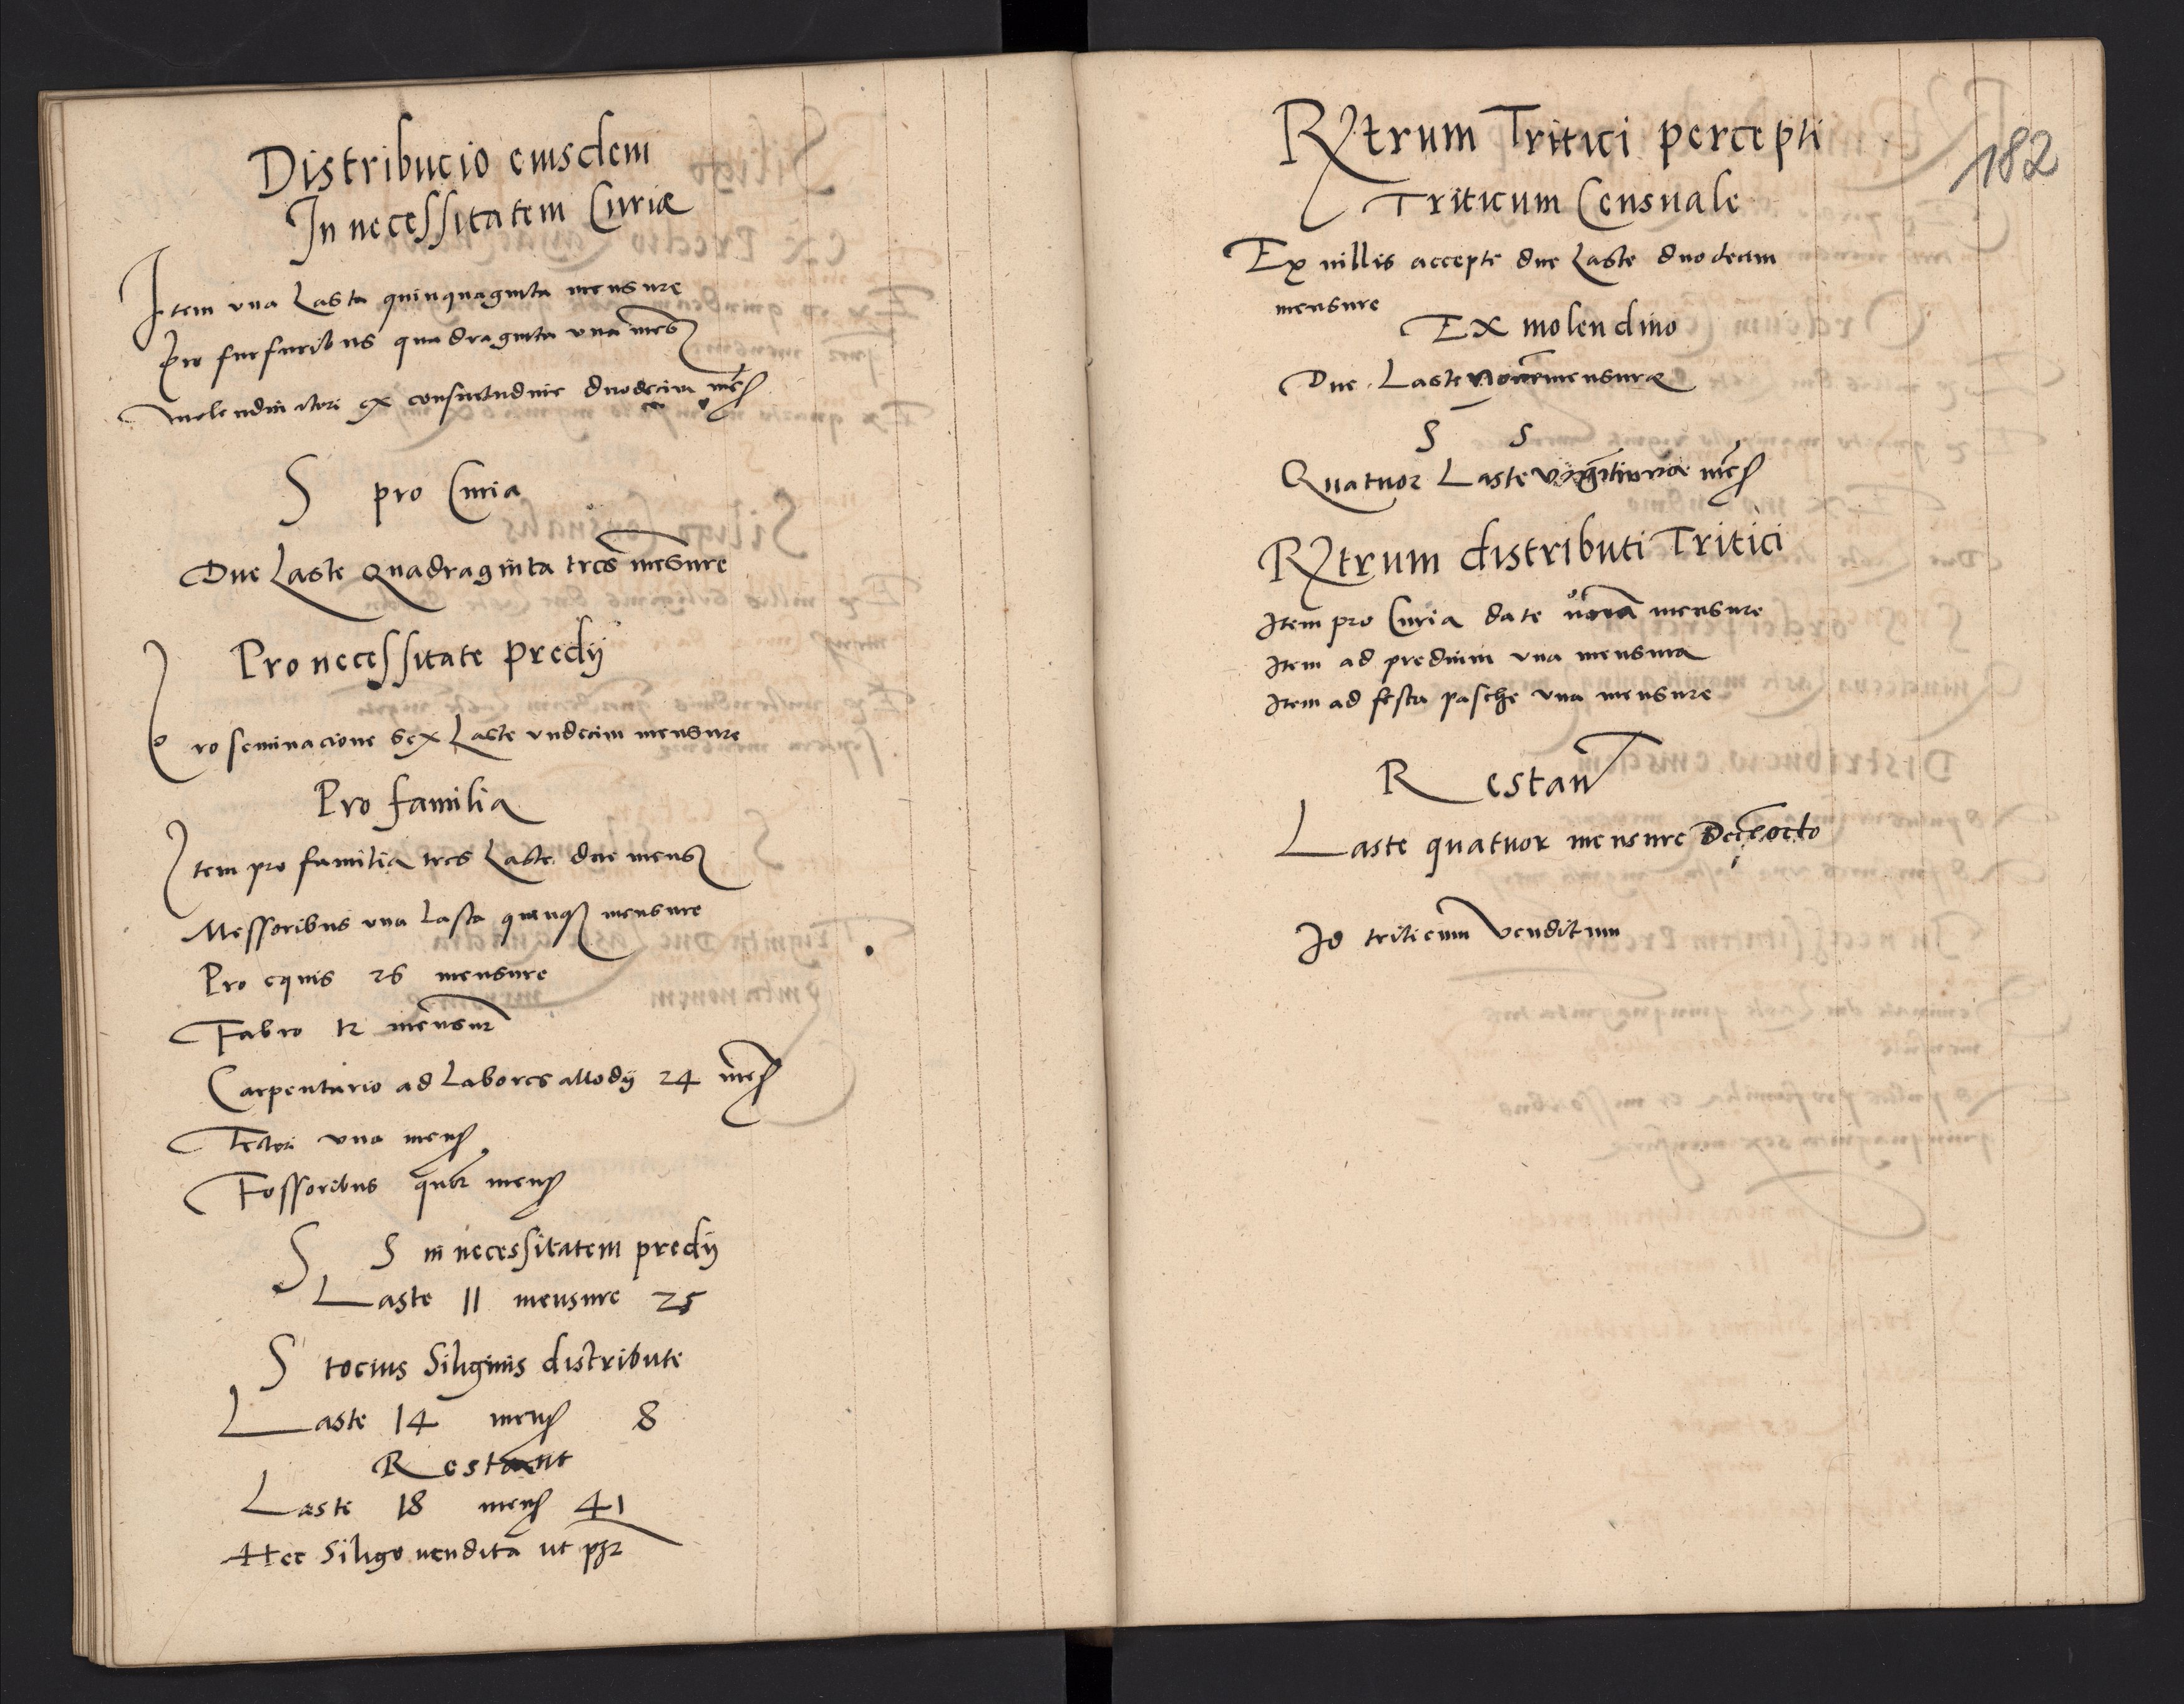 Distribucio eiusdem
In necessitatem Curiæ
Item vna Lasta quinquaginta mensure
Pro furfuribus quadraginta vna mens
Molendinatori ex consuetudine duodecim mens
S pro Curia
Due Laste Quadraginta tres mesure
Pro necessitate predij
Pro seminacione sex Laste vndecim mensure
Pro familia
Item pro familia tres Laste due mens
Messoribus vna Lasta quinqz mensure
Pro equis 26 mensure
Fabro 12 mensur
Carpentario ad Labores allodij 24 mens
Tectori vna mens
Fossoribus quatr mens
S S in necessitatem predij
Laste 11 mensure 25
S tocius Siliginis distribute
Laste 14 mens 8
Restant
Laste 18 mens 41
Hec Siligo vendita ut
182
Rgtrum Tritici percepti
Triticum Censuale
Ex villis accepte due Laste duodecim
mensure
Ex molendino
Due Laste Novem mensuræ
S S
Quatuor Laste mens
Rgtrum distributi Tritici
Item pro Curia date mensure
Item ad predium vna mensura
Item ad festa pasche vna mensure
Restant
Laste quatuor mensure Decem octo
Id triticum venditum